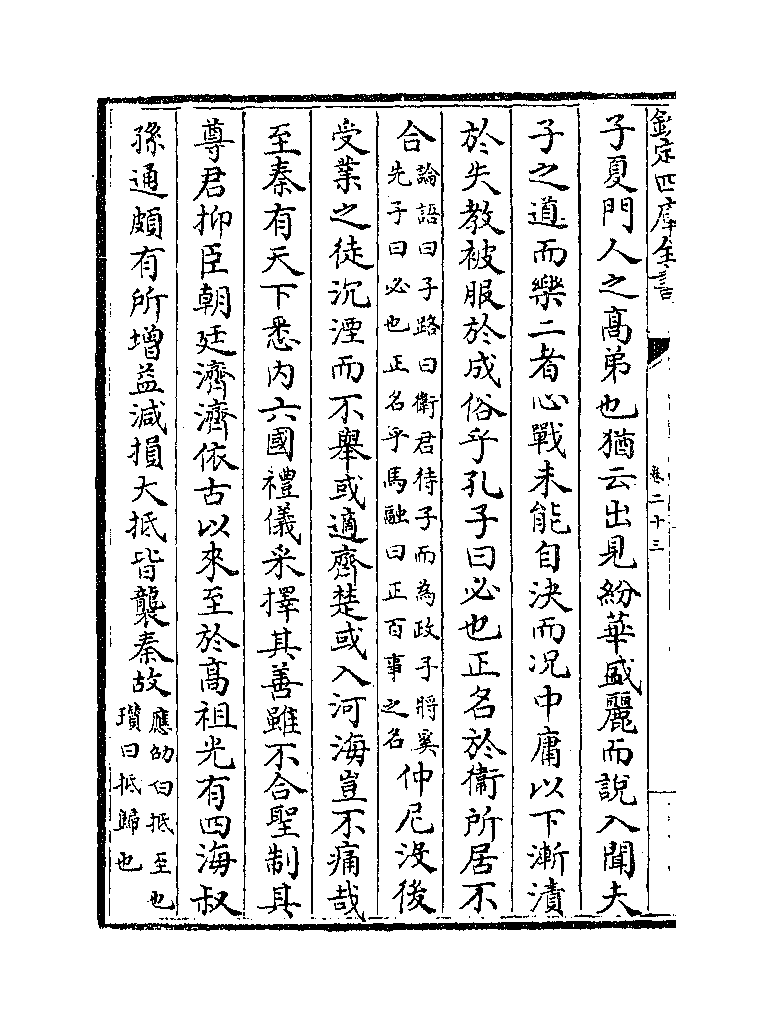 欽定四庫全書
卷二十三
子夏門人之髙弟也猶云出見紛華盛麗而說入聞夫
子之道而樂二者心戰未能自決而况中庸以下漸漬
於失教被服於成俗乎孔子曰必也正名於衛所居不
合論語曰子路曰衛君待子而為政子將奚先子曰必也正名乎馬融曰正百事之名仲尼没後
受業之徒沉湮而不舉或適齊楚或入河海豈不痛哉
至秦有天下悉内六國禮儀采擇其善雖不合聖制其
尊君抑臣朝廷濟濟依古以來至於髙祖光有四海叔
孫通頗有所增益減損大抵皆襲秦故應劭曰抵至也瓚曰抵歸也